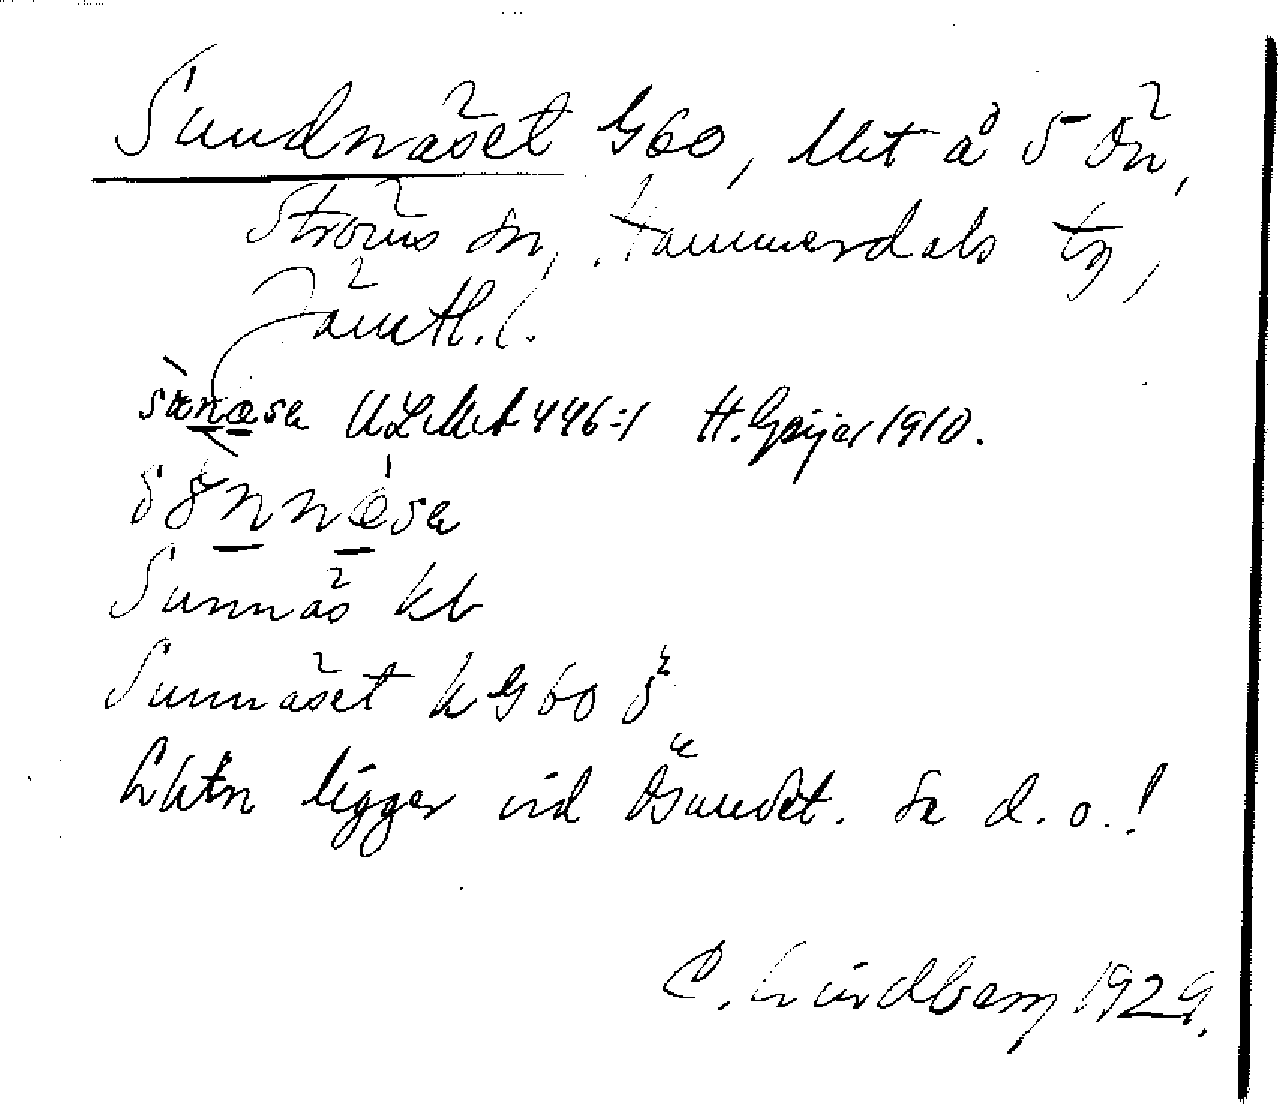 Sundnäset G60, Utet å 5 ön,
Ströms sn, Hammerdals tg,
Jämtl. l.
sænæsa ULMA 446:1 H. Geijer 1910.
sønnæsa
Sunnäs kb
Sunnäset kG60
ligger vid Ösundet. Se d. o.!
C. Lindberg 1929.